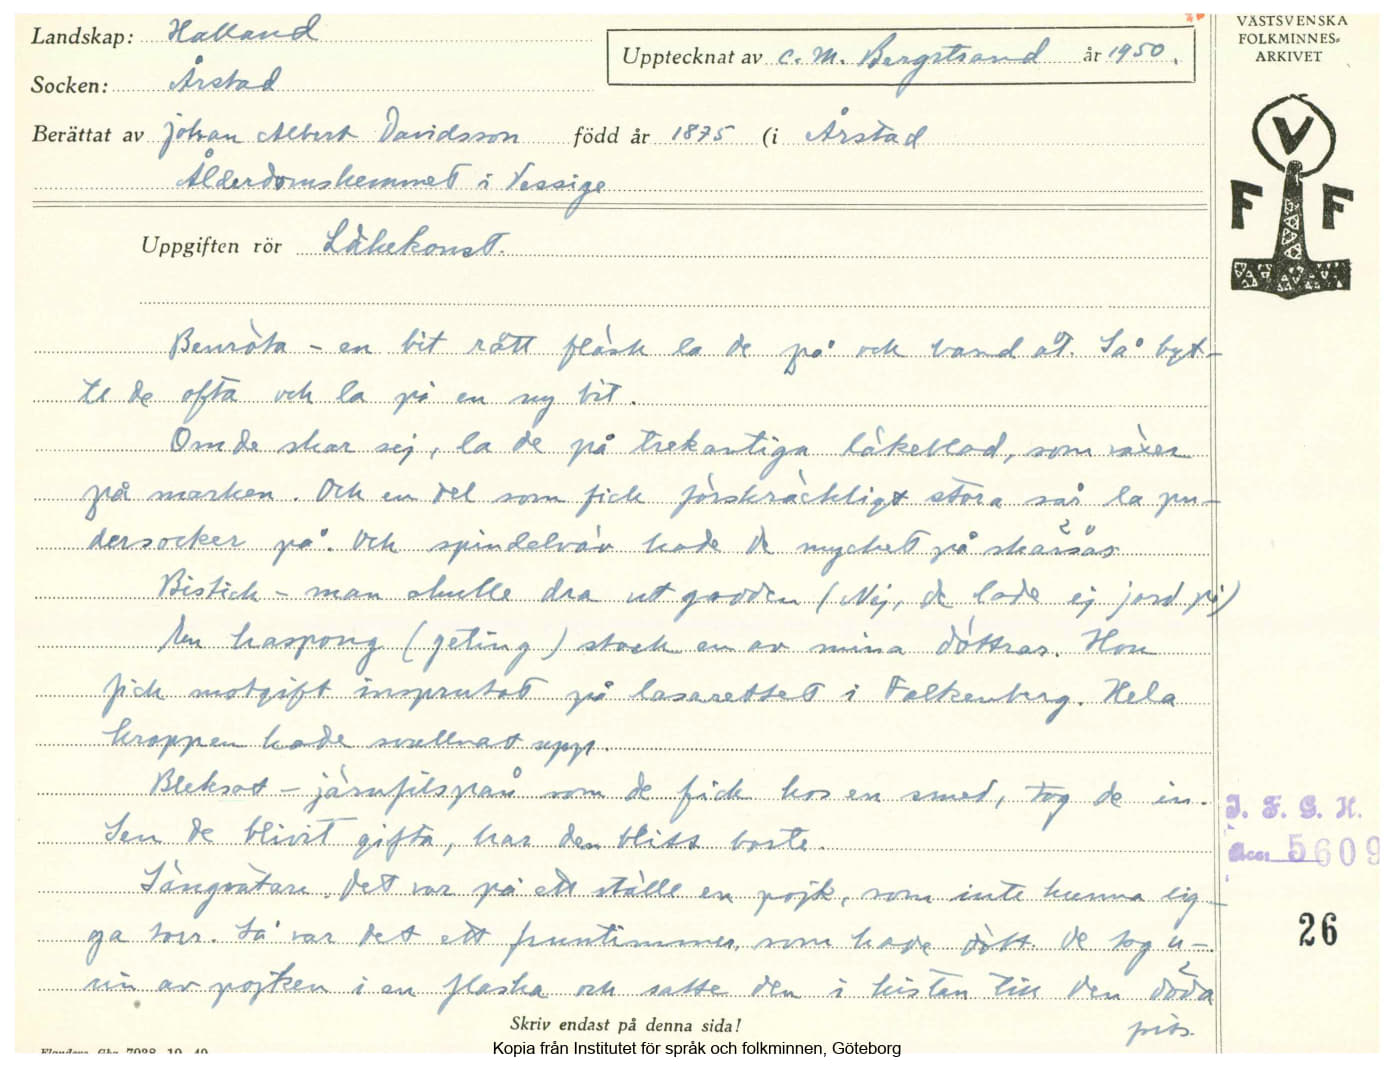 Landskap: Halland
Socken: Årstad
Upptecknat av C. M. Bergstrand år 1950.
Berättat av Johan Albert Davidsson född år 1875 (i Årstad
Ålderdomshemmet i Vessige
VÄSTSVENSKA
FOLKMINNES-
ARKIVET
V
F F
Uppgiften rör Läkekonst.
Benröta – en bit rått fläsk la de på och band åt. Så byt-
te de ofta och la på en ny bit.
Om de skar sej, la de på trekantiga läkeblad, som växer
på marken. Och en del som fick förskräckligt stora sår la pu-
dersocker på. Och spindelväv hade de mycket på skärsår
Bistick – man skulle dra ut gadden (Nej, de lade ej jord på)
En haspong (geting) stack en av mina döttrar. Hon
fick motgift insprutat på lasarettet i Falkenberg. Hela
kroppen hade svullnat upp.
Bleksot – järnfilspån som de fick hos en smed, tog de in.
Sen de blivit gifta, har den blitt borte.
Sängvätare. Det var på ett ställe en pojk, som inte kunna lig-
ga torr. Så var det ett fruntimmer, som hade dött. De tog u-
rin av pojken i en flaska och satte den i kistan till den döda
I. F. G. H.
Acc 5609
26
Skriv endast på denna sida!
Kopia från Institutet för språk och folkminnen, Göteborg